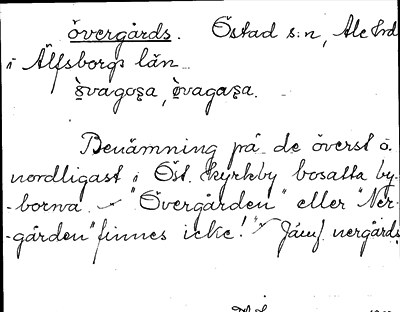 övergårds. Östad s:n, Ale hrd
i Älfsborgs län
Benämning på de överst o.
nordligast i Öst. kyrkby bosatta by-
-borna. "Övergården" eller "Ner-
-gården" finnes icke! Jämf. nergårds